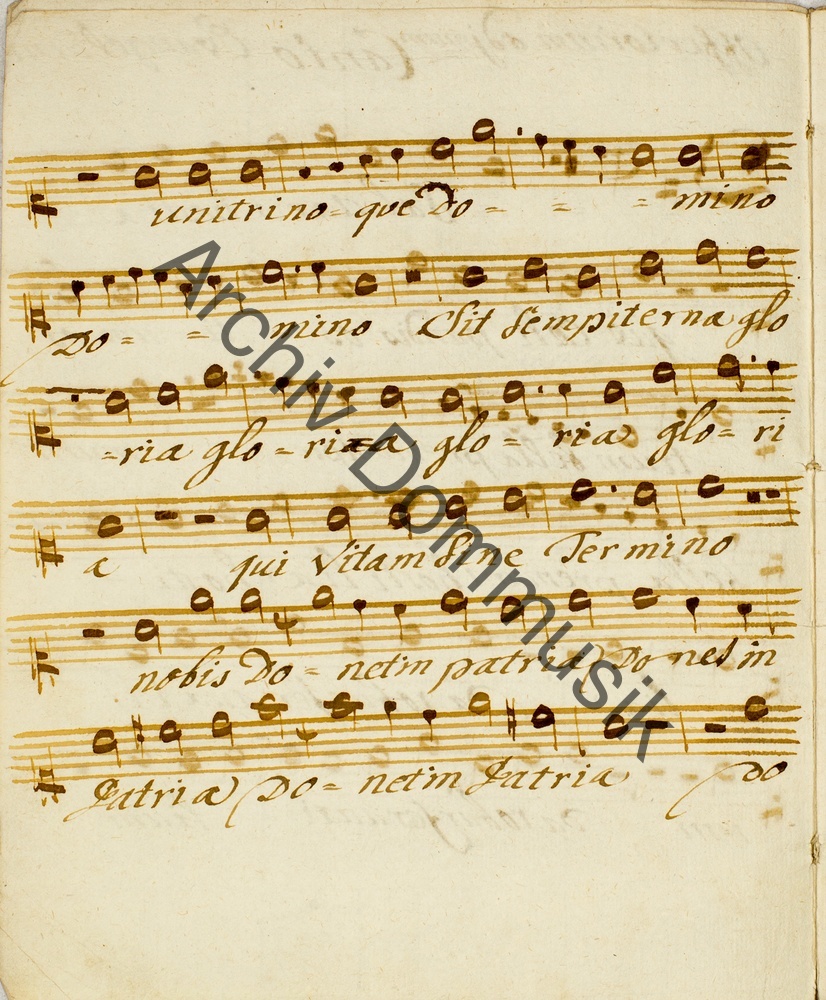 unitrino = que Do = = = mino
Do = = mino Sit sempiterna glo
= ria glo = ria glo = ria glo = ri
a qui Vitam sine Termino
nobis Do = netin patria Donet in
Patria Do = netin Patria Do
Archiv Dommusik